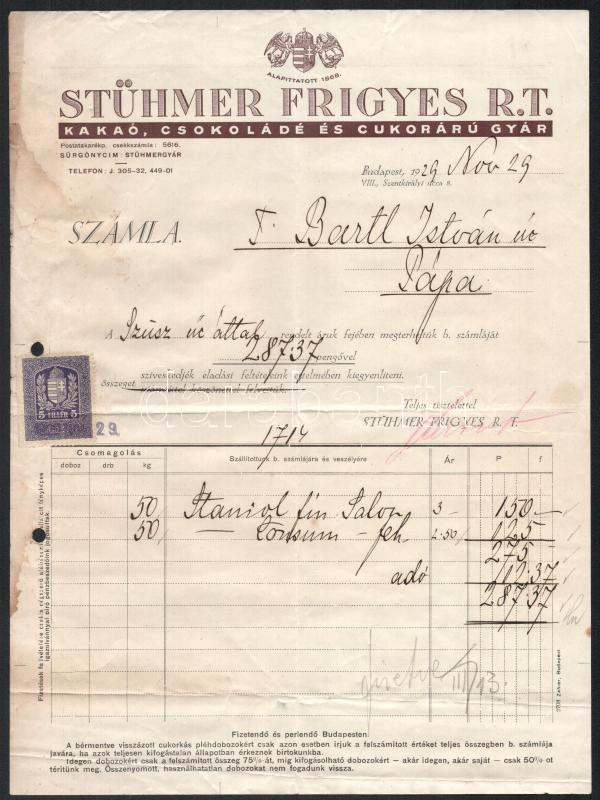 ALAPITTATOTT 1868.
STÜHMER FRIGYES R.T.
KAKAÓ, CSOKOLÁDÉ ÉS CUKORÁRÚ GYÁR
Postatakarékp. csekkszámla: 5616.
SÜRGÖNYCIM: STÜHMERGYÁR
TELEFON: J. 305-32, 449-01
Budapest, 1929 Nov 29
VIII., Szentkirályi ucca 8.
SZÁMLA.
T. Bartl István úc
Pápa
A Szüsz úc által rendelt áruk fejében megterheltük b. számláját
287·37 pengővel
összeget szíveskedjék eladási feltételeink értelmében kiegyenlíteni.
köszönettel felvettük.
5 FILLÉR 5
29.
Teljes tisztelettel
STÜHMER FRIGYES R. T.
1714
Csomagolás
doboz drb kg Szállítottunk b. számlájára és veszélyére Ár P f
50 Staniol fin Salon 3 — 150 —
50 Consum — feh 2·50 125
275
adó 12·37
287·37
Fizetendő és perlendő Budapesten.
A bérmentve visszázott cukorkás pléhdobozokért csak azon esetben irjuk a felszámitott értéket teljes összegben b. számlája
javára, ha azok teljesen kifogástalan állapotban érkeznek birtokunkba.
Idegen dobozokért csak a felszámított összeg 75%-át, míg kifogásolható dobozokért — akár idegen, akár saját — csak 50%-ot
térítünk meg. Összenyomott, használhatatlan dobozokat nem fogadunk vissza.